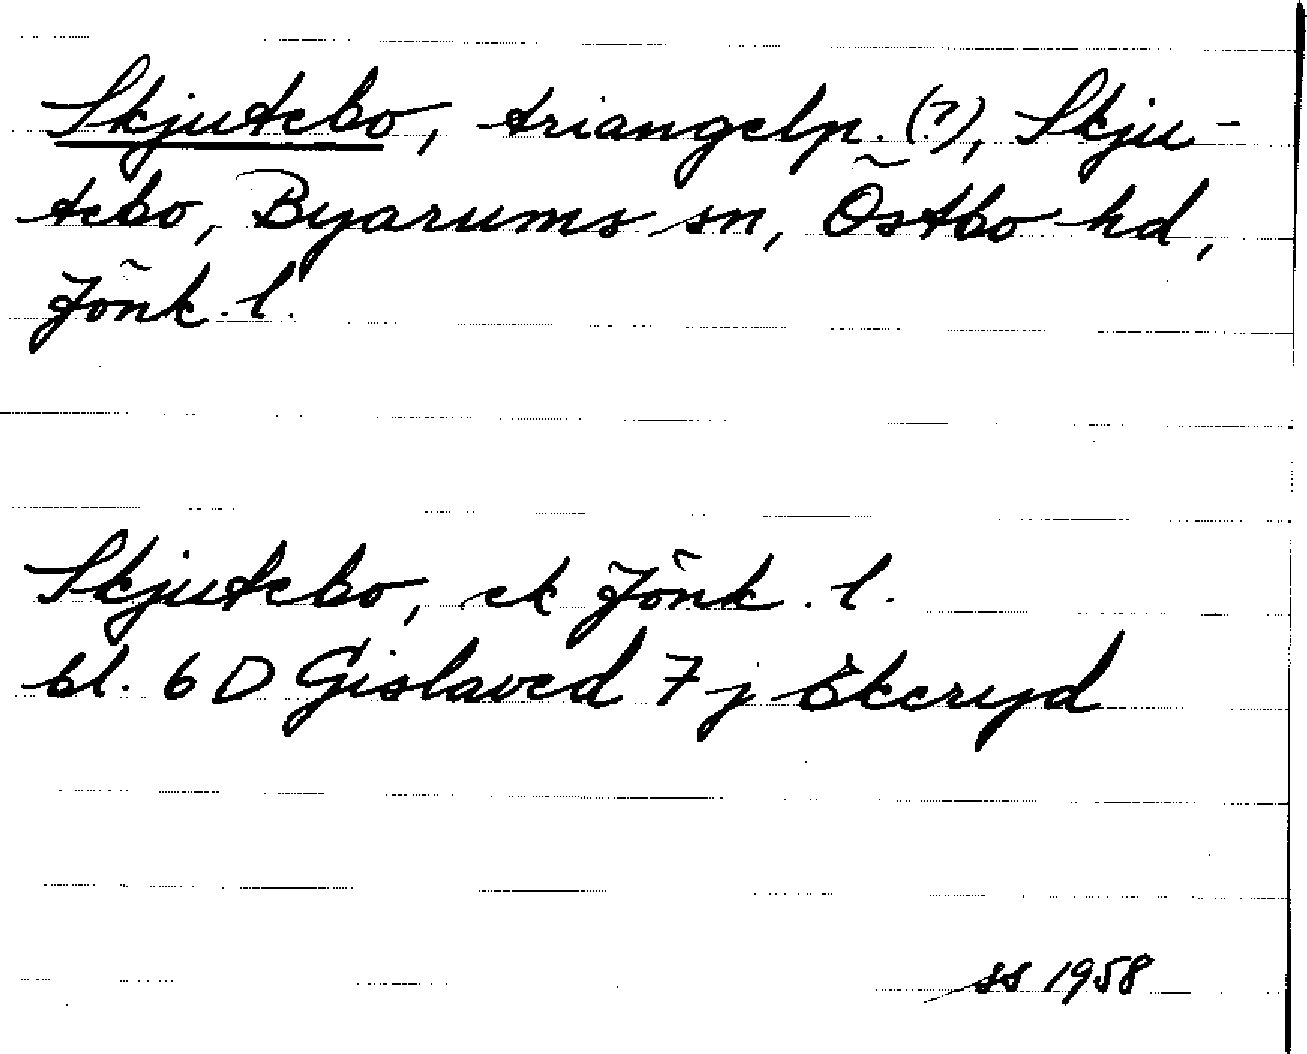 Skjutebo, triangelp. (?), Skju-
tebo, Byarums sn, Östbo hd,
Jönk. l.
Skjutebo, ek Jönk. l.
bl. 6 D Gislaved 7 j Ekeryd
ss 1958